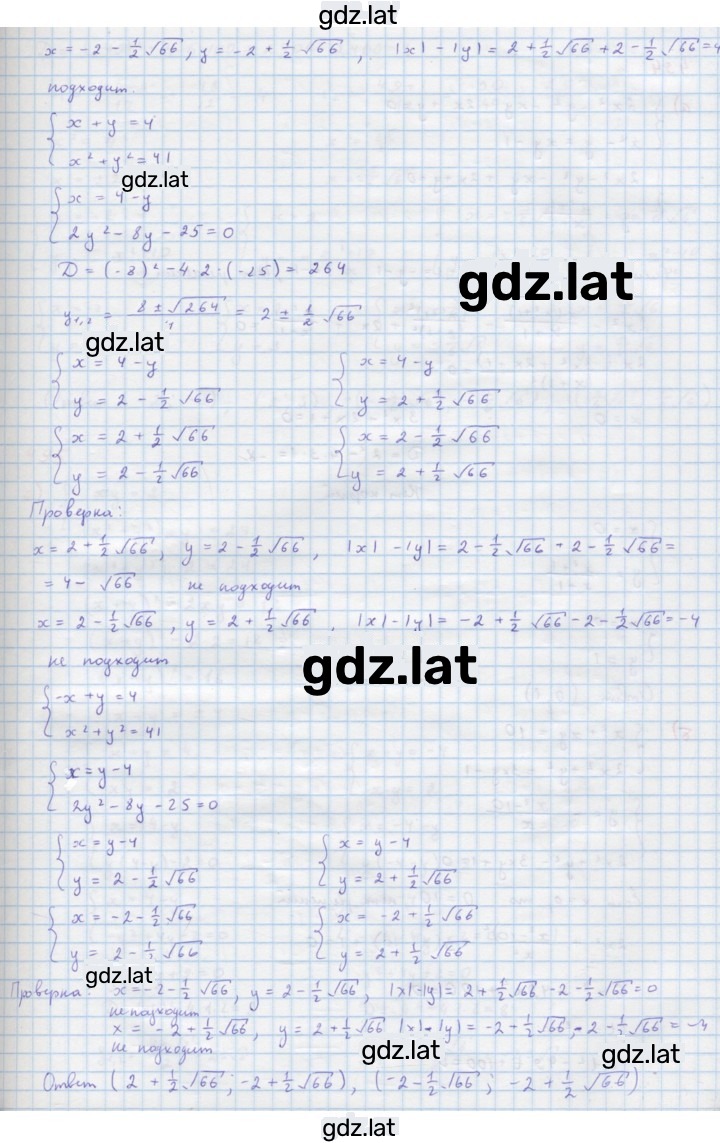 gdz.lat
x = -2 - 1/2 √66, y = -2 + 1/2 √66, |x| - |y| = 2 + 1/2 √66 + 2 - 1/2 √66 = 4
подходит.
{ x + y = 4
x² + y² = 41
gdz.lat
{ x = 4 - y
2y² - 8y - 25 = 0
D = (-8)² - 4·2·(-25) = 264
gdz.lat
y₁,₂ = (8 ± √264)/4 = 2 ± 1/2 √66
gdz.lat
{ x = 4 - y { x = 4 - y
y = 2 - 1/2 √66 y = 2 + 1/2 √66
{ x = 2 + 1/2 √66 { x = 2 - 1/2 √66
y = 2 - 1/2 √66 y = 2 + 1/2 √66
Проверка:
x = 2 + 1/2 √66, y = 2 - 1/2 √66, |x| - |y| = 2 - 1/2 √66 + 2 - 1/2 √66 =
= 4 - √66 не подходит
x = 2 - 1/2 √66, y = 2 + 1/2 √66, |x| - |y| = -2 + 1/2 √66 - 2 - 1/2 √66 = -4
не подходит
gdz.lat
{ -x + y = 4
x² + y² = 41
{ x = y - 4
2y² - 8y - 25 = 0
{ x = y - 4 { x = y - 4
y = 2 - 1/2 √66 y = 2 + 1/2 √66
{ x = -2 - 1/2 √66 { x = -2 + 1/2 √66
y = 2 - 1/2 √66 y = 2 + 1/2 √66
gdz.lat
Проверка: x = -2 - 1/2 √66, y = 2 - 1/2 √66, |x| - |y| = 2 + 1/2 √66 - 2 - 1/2 √66 = 0
не подходит
x = -2 + 1/2 √66, y = 2 + 1/2 √66 |x| - |y| = -2 + 1/2 √66 - 2 - 1/2 √66 = -4
не подходит
gdz.lat
gdz.lat
Ответ (2 + 1/2 √66; -2 + 1/2 √66), (-2 - 1/2 √66; -2 + 1/2 √66)
gdz.lat